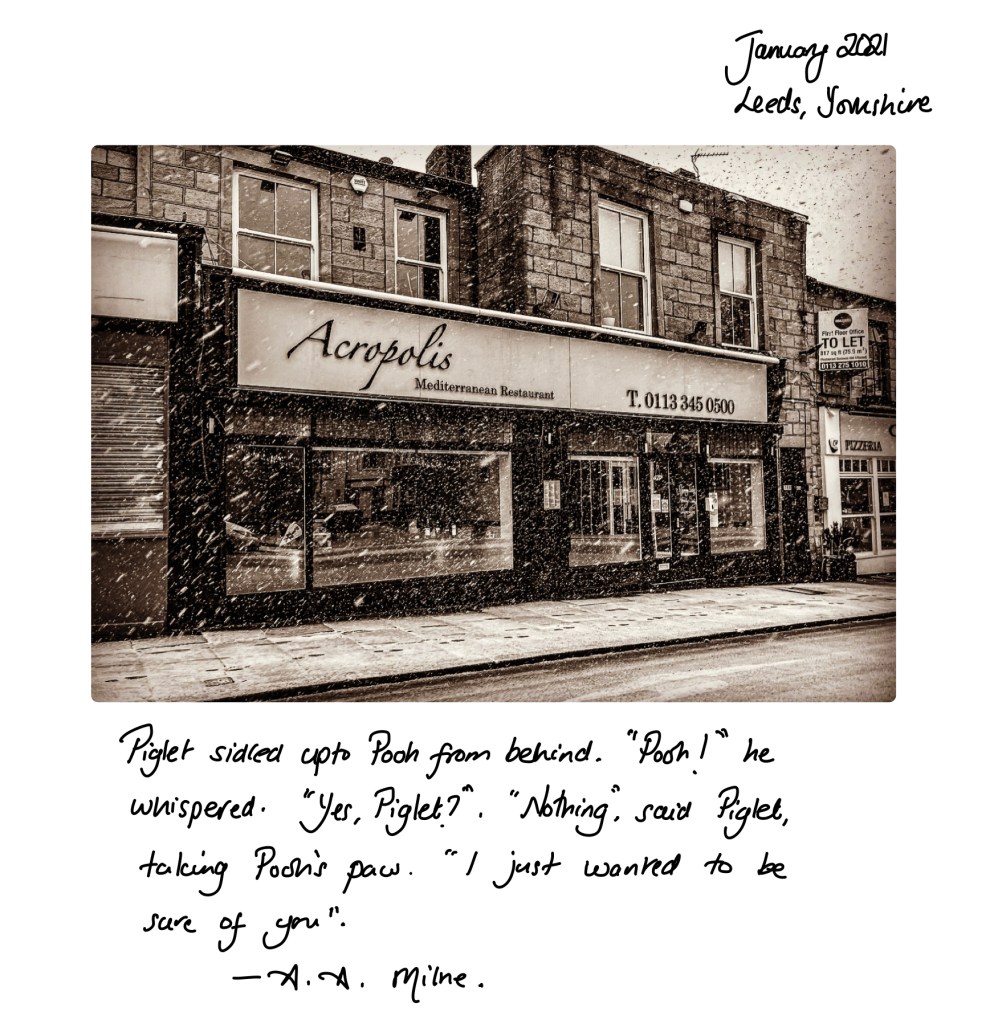 January 2021
Leeds, Yorkshire
Acropolis
Mediterranean Restaurant
T. 0113 345 0500
First Floor Office
TO LET
817 sq ft (75.9 m²)
0113 275 1010
PIZZERIA
Piglet sidled upto Pooh from behind. "Pooh!" he
whispered. "Yes, Piglet?". "Nothing", said Piglet,
taking Pooh's paw. "I just wanted to be
sure of you".
—A.A. Milne.